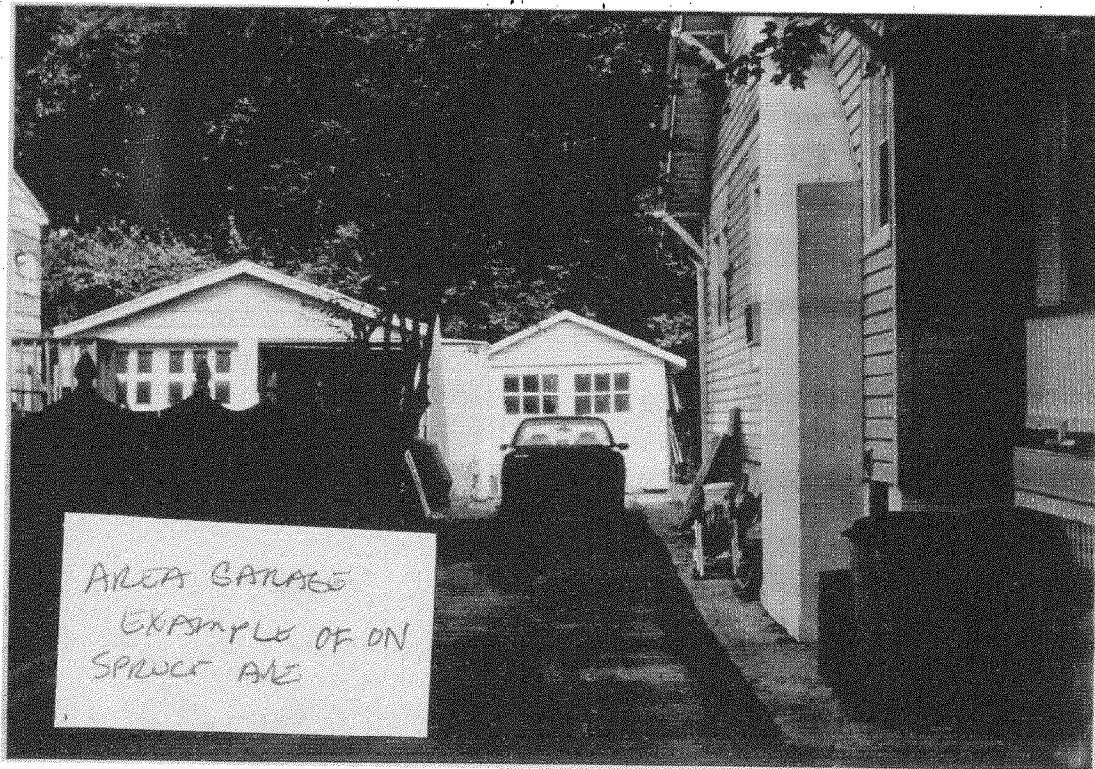 AREA GARAGE
EXAMPLE OF ON
SPRUCE AVE